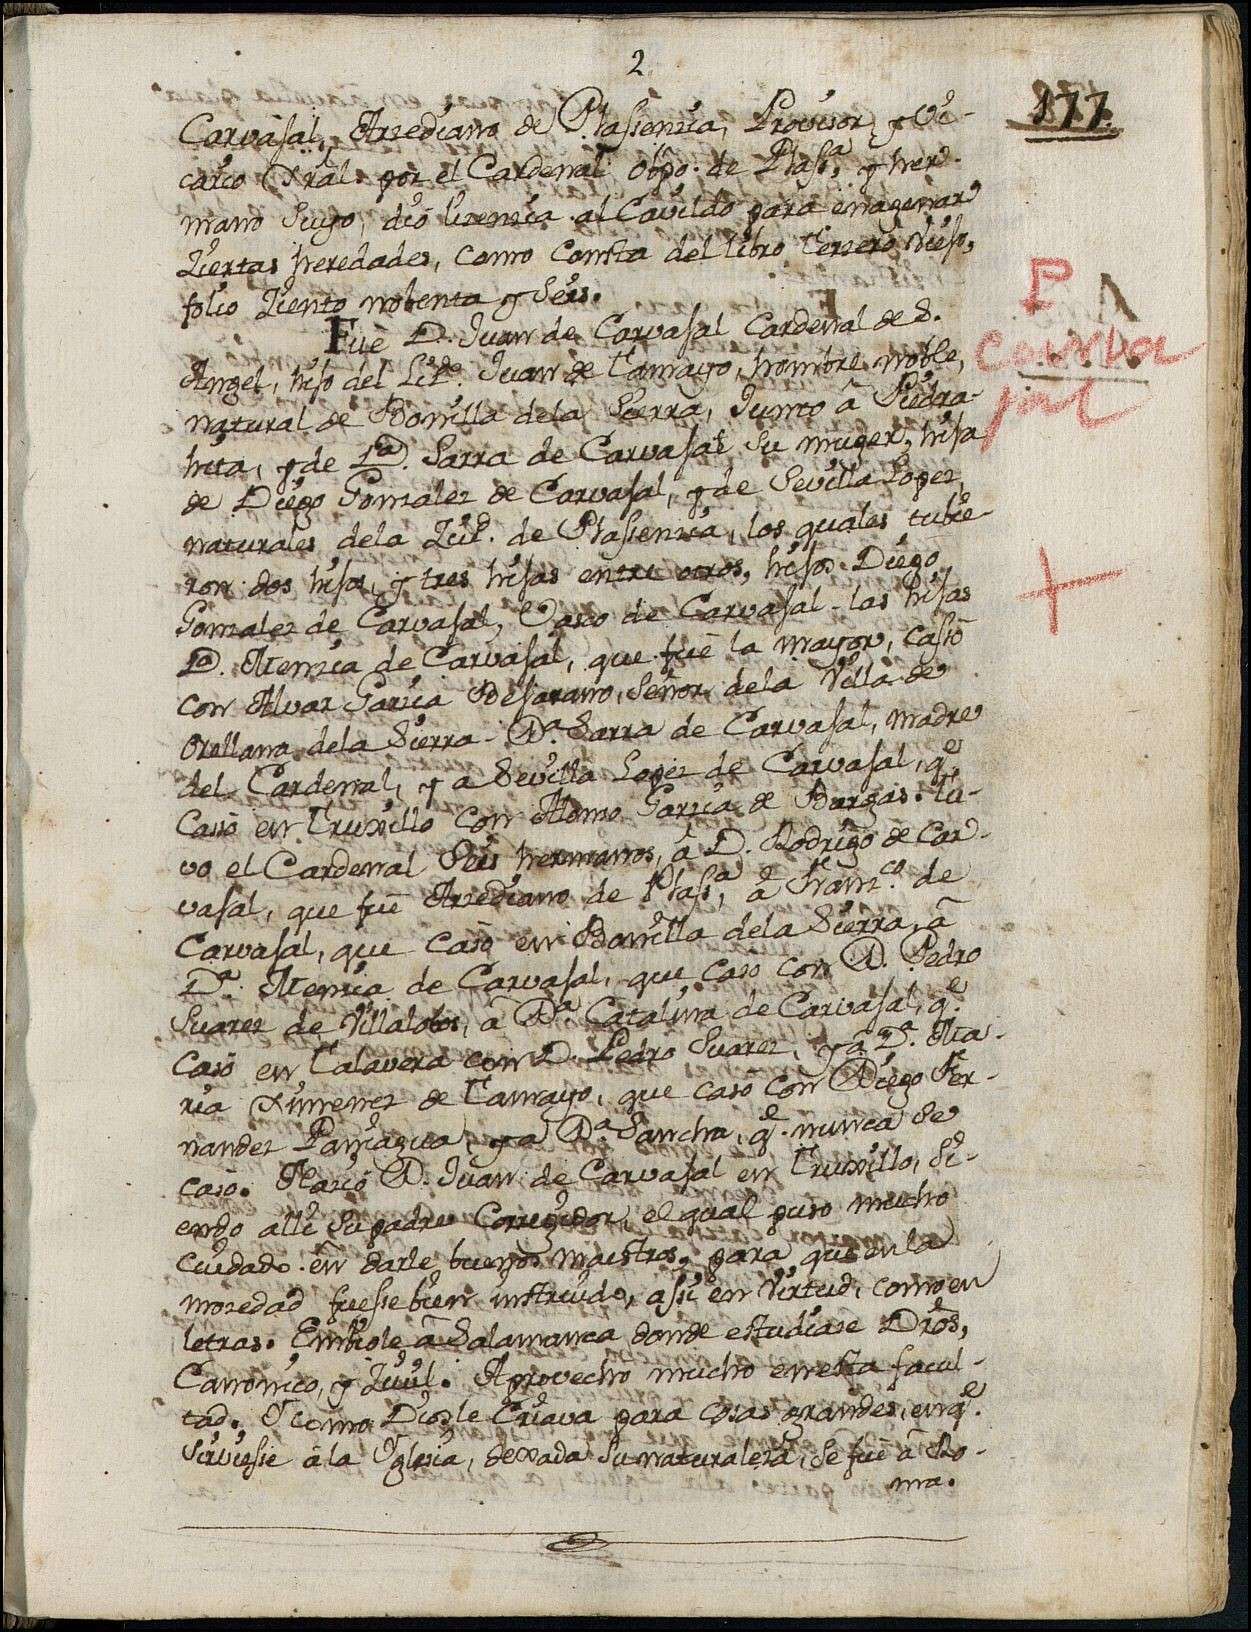 2
177
Carvasal, Arzediano de Plasienzia, Provisor, y Vi-
cario Xral. por el Cardenal Obpo. de Plas.ª, y her-
mano Suyo, diò lizenzia al Cavildo para enagenar
Ziertas heredades, como consta del libro terzero viejo,
folio Ziento nobenta y Seis.
Fuè D. Juan de Carvasal Cardenal de S.
Angel, hijo del Lizdo. Juan de Tamayo, hombre noble,
natural de Bonilla dela Sierra, Junto â Piedra-
hita, y de D.ª Sarra de Carvasal su muger, hija
de Diego Gonzalez de Carvasal, y de Sevilla Lopez,
naturales dela Ziud. de Plasienzia, los quales tubie-
ron dos hijos, y tres hijas entre otros, hijos Diego
Gonzalez de Carvasal, Vasco de Carvasal - las hijas
D.ª Menzia de Carvasal, que fuè la mayor, casò
con Alvar Garzia Besarano, Señor dela Villa de
Orellana dela Sierra - D.ª Sarra de Carvasal, madre
del Cardenal, y a Sevilla Lopez de Carvasal, q.e
Casò en Truxillo con Alonso Garzia de Bargas. Tu-
vo el Cardenal Seis hermanos, â D. Rodrigo de Car-
vasal, que fuè Arzediano de Plas.ª, â Franz.co de
Carvasal, que casò en Bonilla dela Sierra, â
D.ª Menzia de Carvasal, que caso con D. Pedro
Suarez de Villalobos, â D.ª Catalina de Carvasal, q.e
Casò en Talavera con D. Pedro Suarez, y â D.ª Ma-
ria Ximenez de Tamayo, que casò con Diego Fer-
nandez Paniagua, y a D.ª Sancha, q.e nunca se
caso. Naziò D. Juan de Carvasal en Truxillo, Si-
endo alli su padre Corregidor, el qual puso mucho
cuidado en darle buenos maestros, para que en la
mozedad fuesse bien instruido, assi en Virtud, como en
letras. Embiole â Salamanca donde estudiase Dros,
Canonico, y Zivil. Aprovecho mucho en esta facul-
tad. Y como Dios le Criava para cosas grandes, en q.e
Sirviesse â la Yglesia, dexada su naturaleza, se fuè â Ro-
ma.
P
Carva
jal